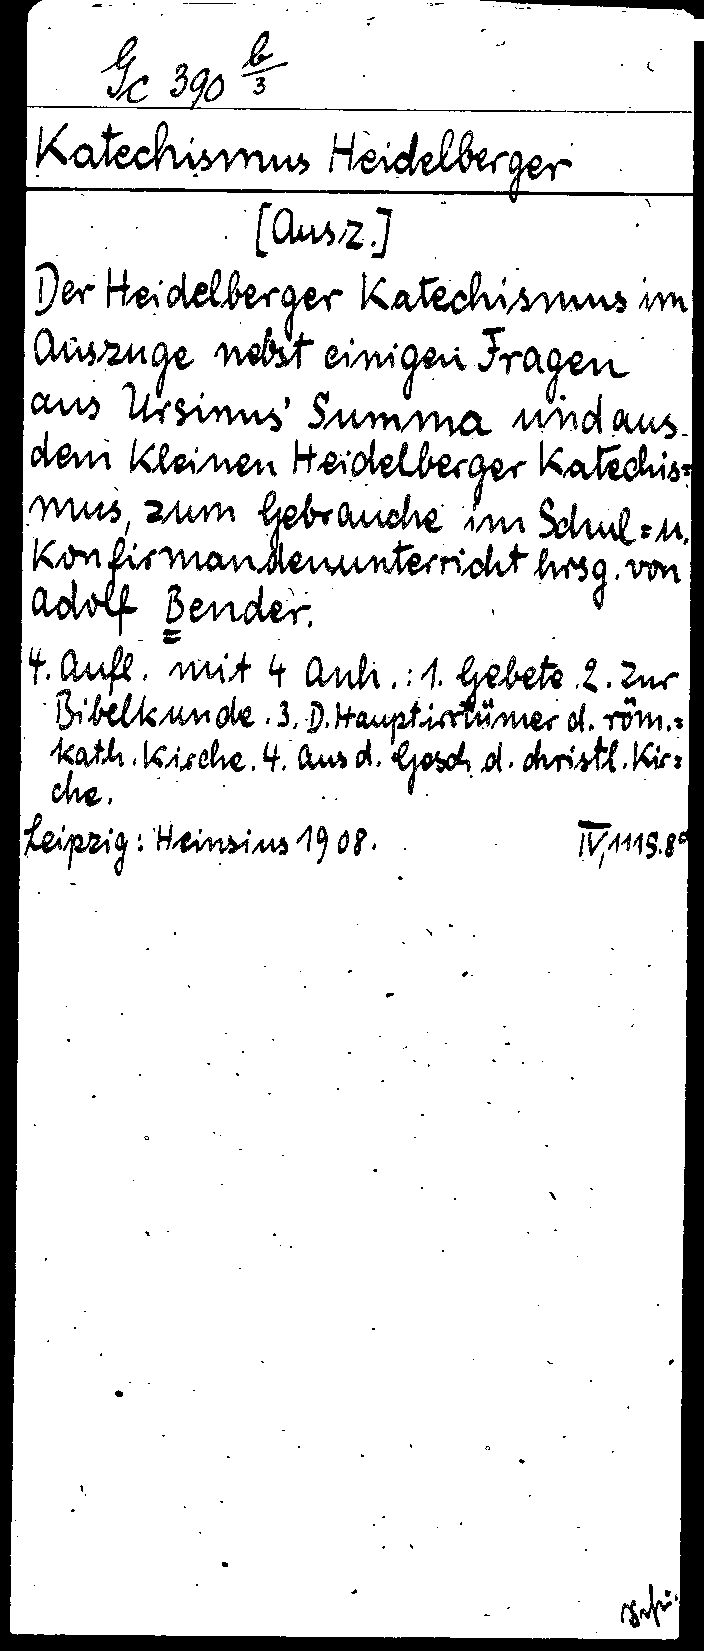 Gc 390 b/3
Katechismus Heidelberger
[Ausz.]
Der Heidelberger Katechismus im
Auszuge nebst einigen Fragen
aus Ursinus' Summa und aus
dem Kleinen Heidelberger Katechis=
mus, zum Gebrauche im Schul= u.
Konfirmandenunterricht hrsg. von
Adolf Bender.
4. Aufl. mit 4 Anh.: 1. Gebete. 2. Zur
Bibelkunde. 3. D. Hauptirrtümer d. röm.=
kath. Kirche. 4. Aus d. Gesch. d. christl. Kir=
che.
Leipzig: Heinsius 1908. IV, 111 S. 8°